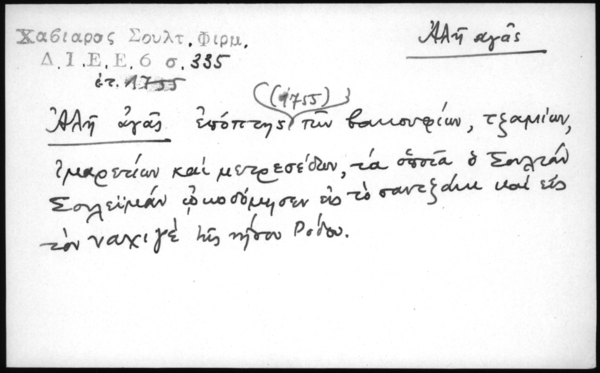 Χαβιαρος Σουλτ. Φιρμ.
Ἀλῆ αγᾶς
Δ.Ι.Ε.Ε.6 σ. 335
ἐτ. 1755
(1755)
Ἀλῆ ἀγᾶς ἐπόπτης τῶν βακουφίων, τζαμίων,
ἰμαρετίων καί μετρεσέδων, τά ὁποῖα ὁ Σουλτάν
Σουλεϊμάν ᾠκοδόμησεν εἰς τό σαντζάκ καί εἰς
τόν ναχιγέ τῆς νήσου Ρόδου.